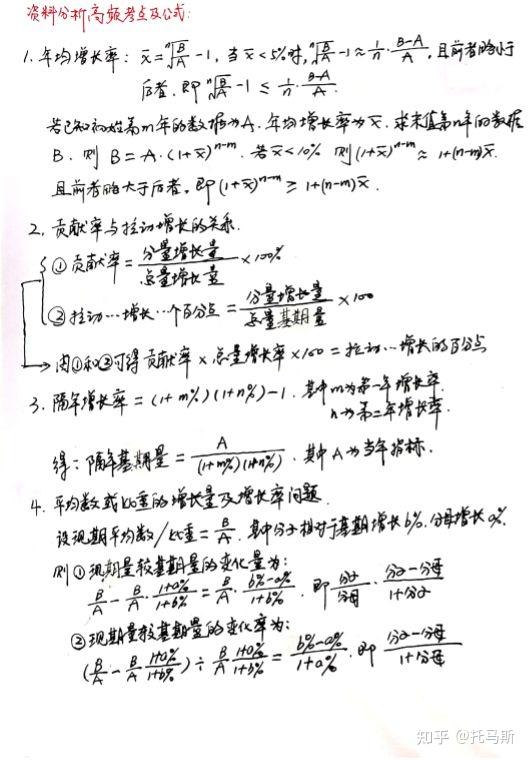 资料分析高频考点及公式:
1. 年均增长率: x̄ = ⁿ√(B/A) - 1, 当 x̄ < 5% 时, ⁿ√(B/A) - 1 ≈ 1/n · (B-A)/A, 且前者略小于
后者, 即 ⁿ√(B/A) - 1 ≤ 1/n · (B-A)/A.
若已知初始第m年的数据为A, 年均增长率为x̄, 求末值第n年的数据
B, 则 B = A·(1+x̄)ⁿ⁻ᵐ. 若x̄<10% 则(1+x̄)ⁿ⁻ᵐ ≈ 1+(n-m)x̄.
且前者略大于后者, 即(1+x̄)ⁿ⁻ᵐ ≥ 1+(n-m)x̄.
2. 贡献率与拉动增长的关系.
① 贡献率 = 分量增长量/总量增长量 × 100%
② 拉动…增长…个百分点 = 分量增长量/总量基期量 × 100
→ 由①和②可得 贡献率 × 总量增长率 × 100 = 拉动…增长的百分点
3. 隔年增长率 = (1+m%)(1+n%)-1. 其中m为第一年增长率.
n为第二年增长率.
得: 隔年基期量 = A/((1+m%)(1+n%)). 其中A为当年指标.
4. 平均数或比重的增长量及增长率问题.
设现期平均数/比重 = B/A. 其中分子相对于基期增长b%. 分母增长a%.
则 ① 现期量较基期量的变化量为:
B/A - B/A · (1+a%)/(1+b%) = B/A · (b%-a%)/(1+b%). 即 分子/分母 · (分子-分母)/(1+分子)
② 现期量较基期量的变化率为:
(B/A - B/A (1+a%)/(1+b%)) ÷ B/A (1+a%)/(1+b%) = (b%-a%)/(1+a%). 即 (分子-分母)/(1+分母)
知乎 @托马斯